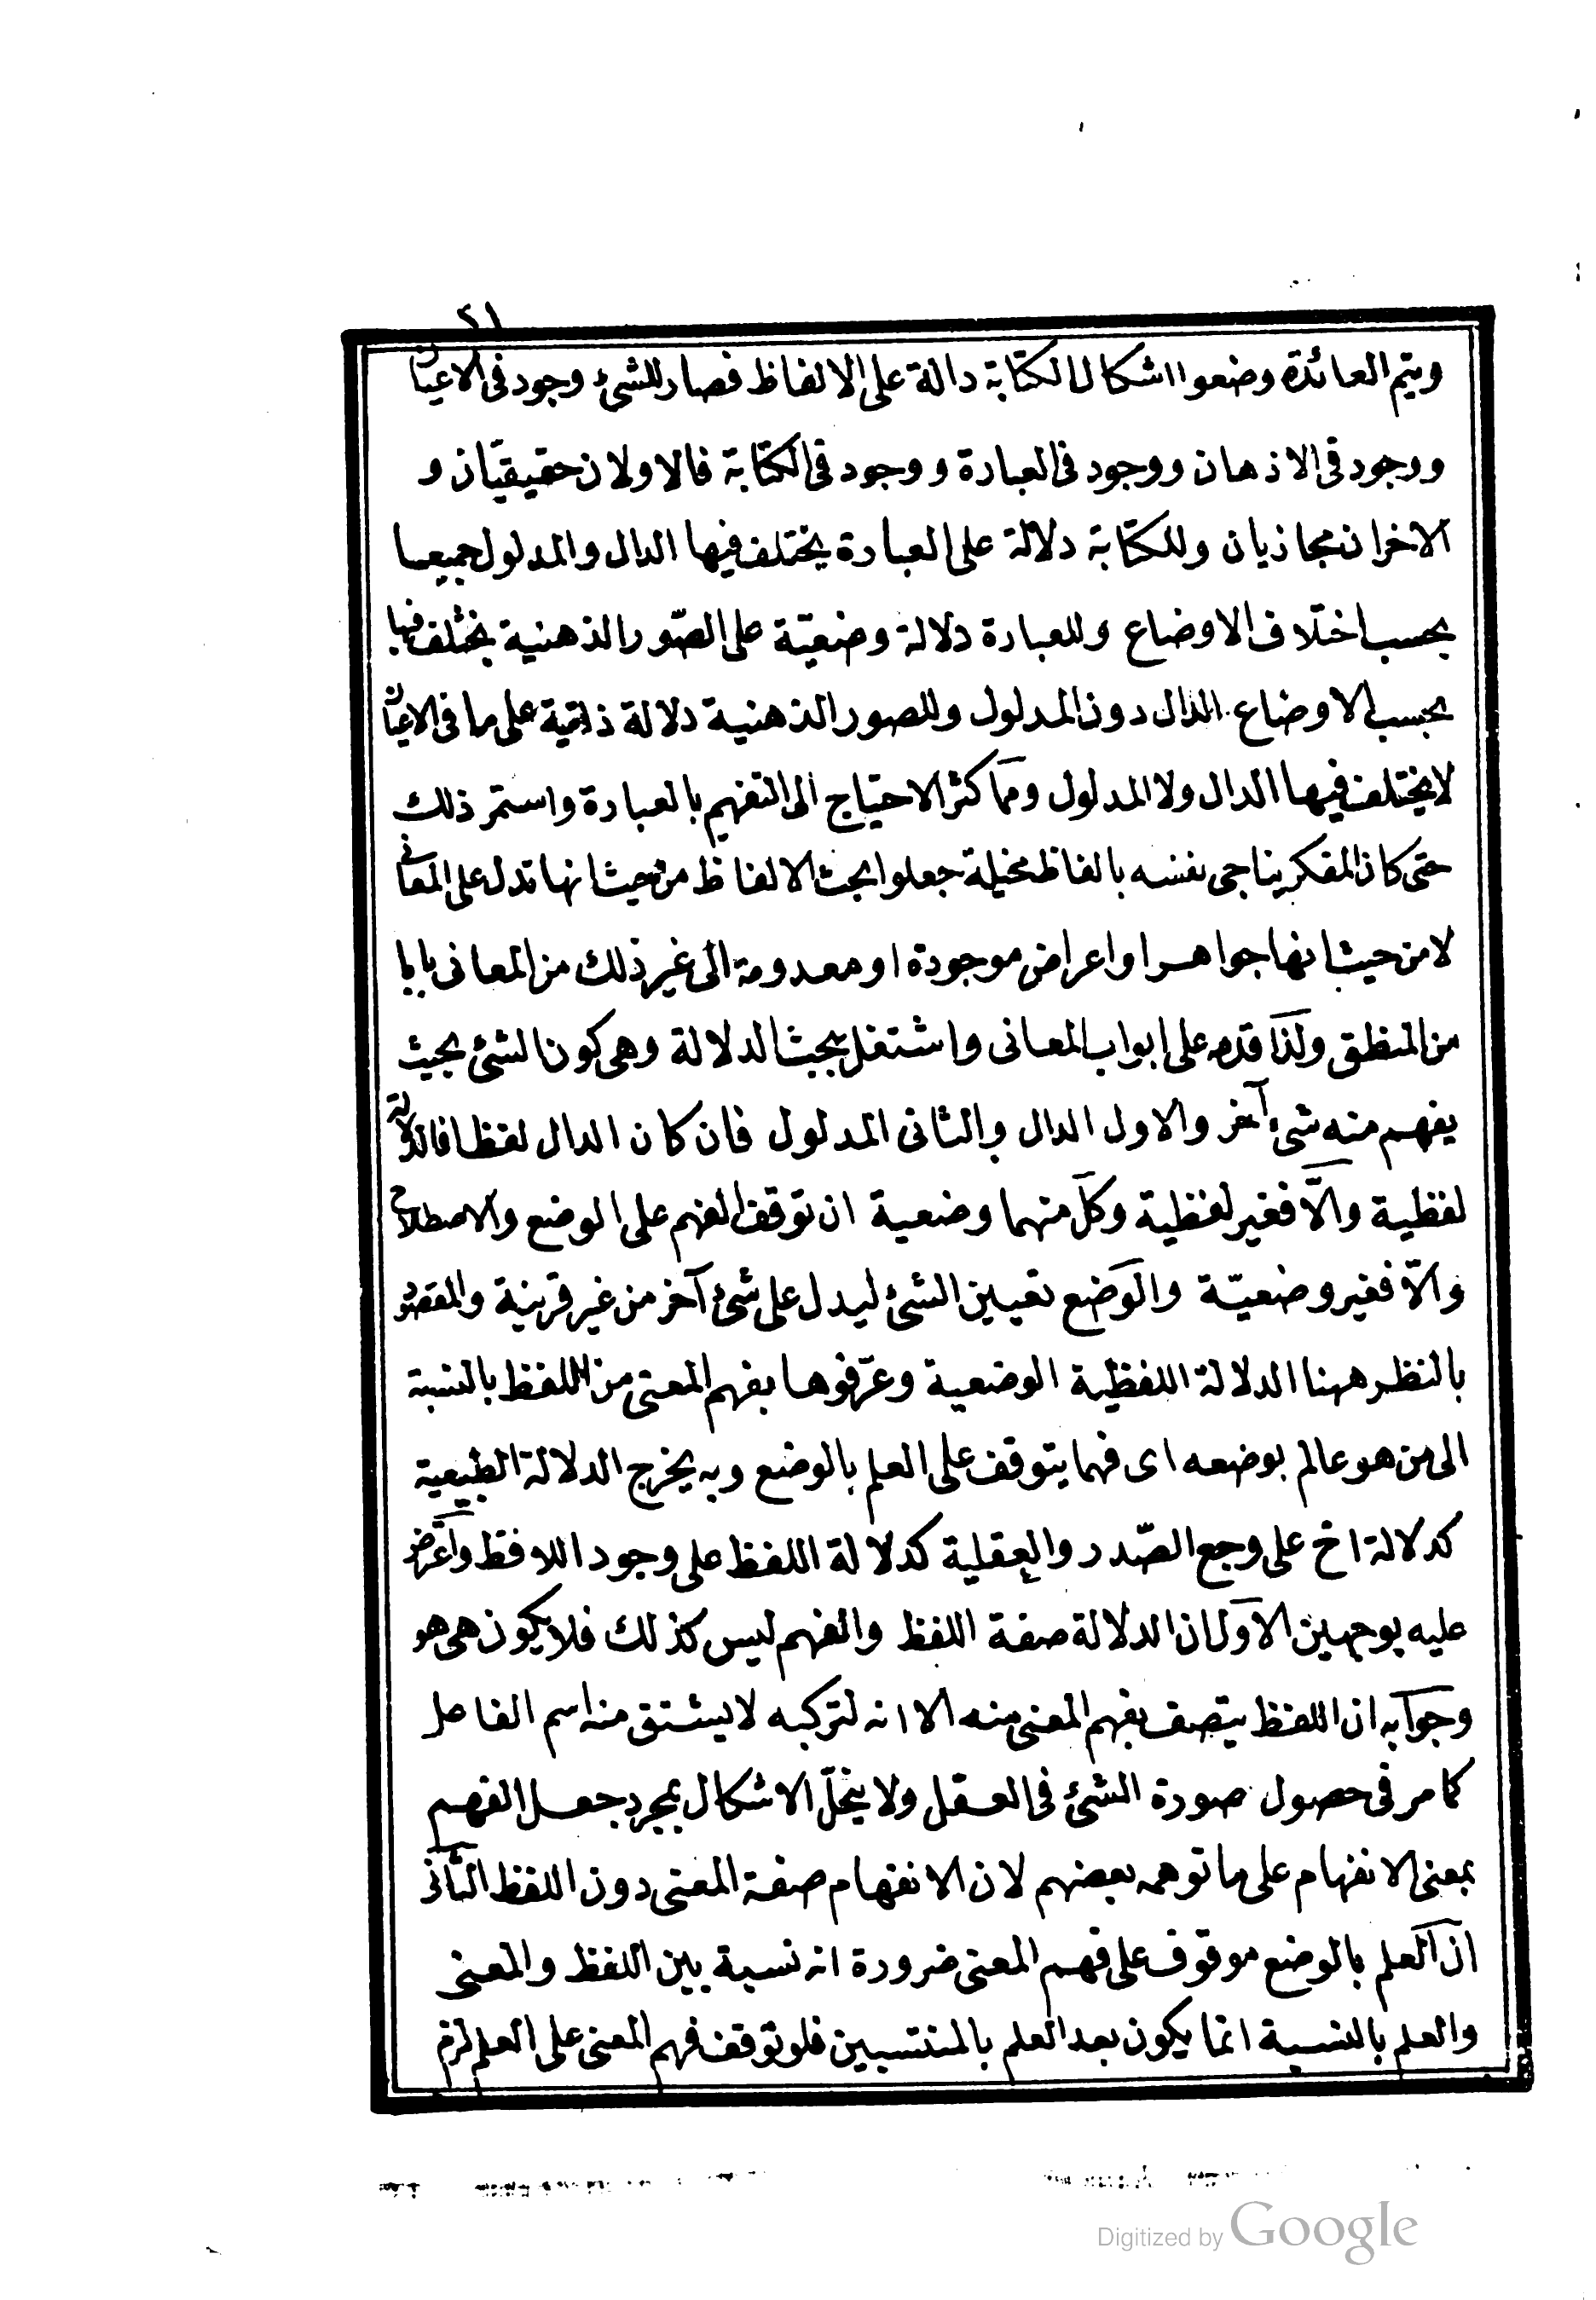 ٢١
ويتم العائدة وضعوا اشكال الكتابة دالة على الالفاظ فصار للشئ وجود فى الاعيان
ووجود فى الاذهان ووجود فى العبارة ووجود فى الكتابة فالاولان حقيقيان و
الاخران مجازيان وللكتابة دلالة على العبارة يختلف فيها الدال والمدلول جميعا
بحسب اختلاف الاوضاع وللعبارة دلالة وضعيّة على الصّور الذهنية يختلف فيها
بحسب الاوضاع الدال دون المدلول وللصور الذهنية دلالة ذاتية على ما فى الاعيان
لا يختلف فيها الدال ولا المدلول ومما كثر الاحتياج الى التفهيم بالعبارة واستمر ذلك
حتى كان المفكر يناجى نفسه بالفاظ مخيلة جعلوا بحث الالفاظ من حيث انها تدل على المعانى
لا من حيث انها جواهرا واعراض موجودة او معدومة الى غير ذلك من المعانى بابا
من المنطق ولذا قدمه على ابواب المعانى واشتغل ببحث الدلالة وهى كون الشئ بحيث
يفهم منه شئ آخر والاول الدال والثانى المدلول فان كان الدال لفظا فالدلالة
لفظية والّا فغير لفظية وكلّ منهما وضعية ان توقف الفهم على الوضع والاصطلاح
والّا فغير وضعيّة والوضع تعيين الشئ ليدل على شئ آخر من غير قرينة والمقصود
بالنظر ههنا الدلالة اللفظية الوضعية وعرّفوها بفهم المعنى من اللفظ بالنسبة
الى من هو عالم بوضعه اى فهما يتوقف على العلم بالوضع وبه يخرج الدلالة الطبيعية
كدلالة اخ على وجع الصّدر والعقلية كدلالة اللفظ على وجود اللافظ واعترض
عليه بوجهين الاول ان الدلالة صفة اللفظ والفهم ليس كذلك فلا يكون هى هو
وجوابه ان اللفظ يتصف بفهم المعنى منه الا انه لتركبه لا يشتق منه اسم الفاعل
كما مر فى حصول صورة الشئ فى العقل ولا ينحلّ الاشكال بمجرد جعل الفهم
بمعنى الانفهام على ما توهمه بعضهم لان الانفهام صفة المعنى دون اللفظ الثانى
ان العلم بالوضع موقوف على فهم المعنى ضرورة انه نسبة بين اللفظ والمعنى
والعلم بالنسبة انما يكون بعد العلم بالمنتسبين فلو توقف فهم المعنى على العلم لزم
Digitized by Google